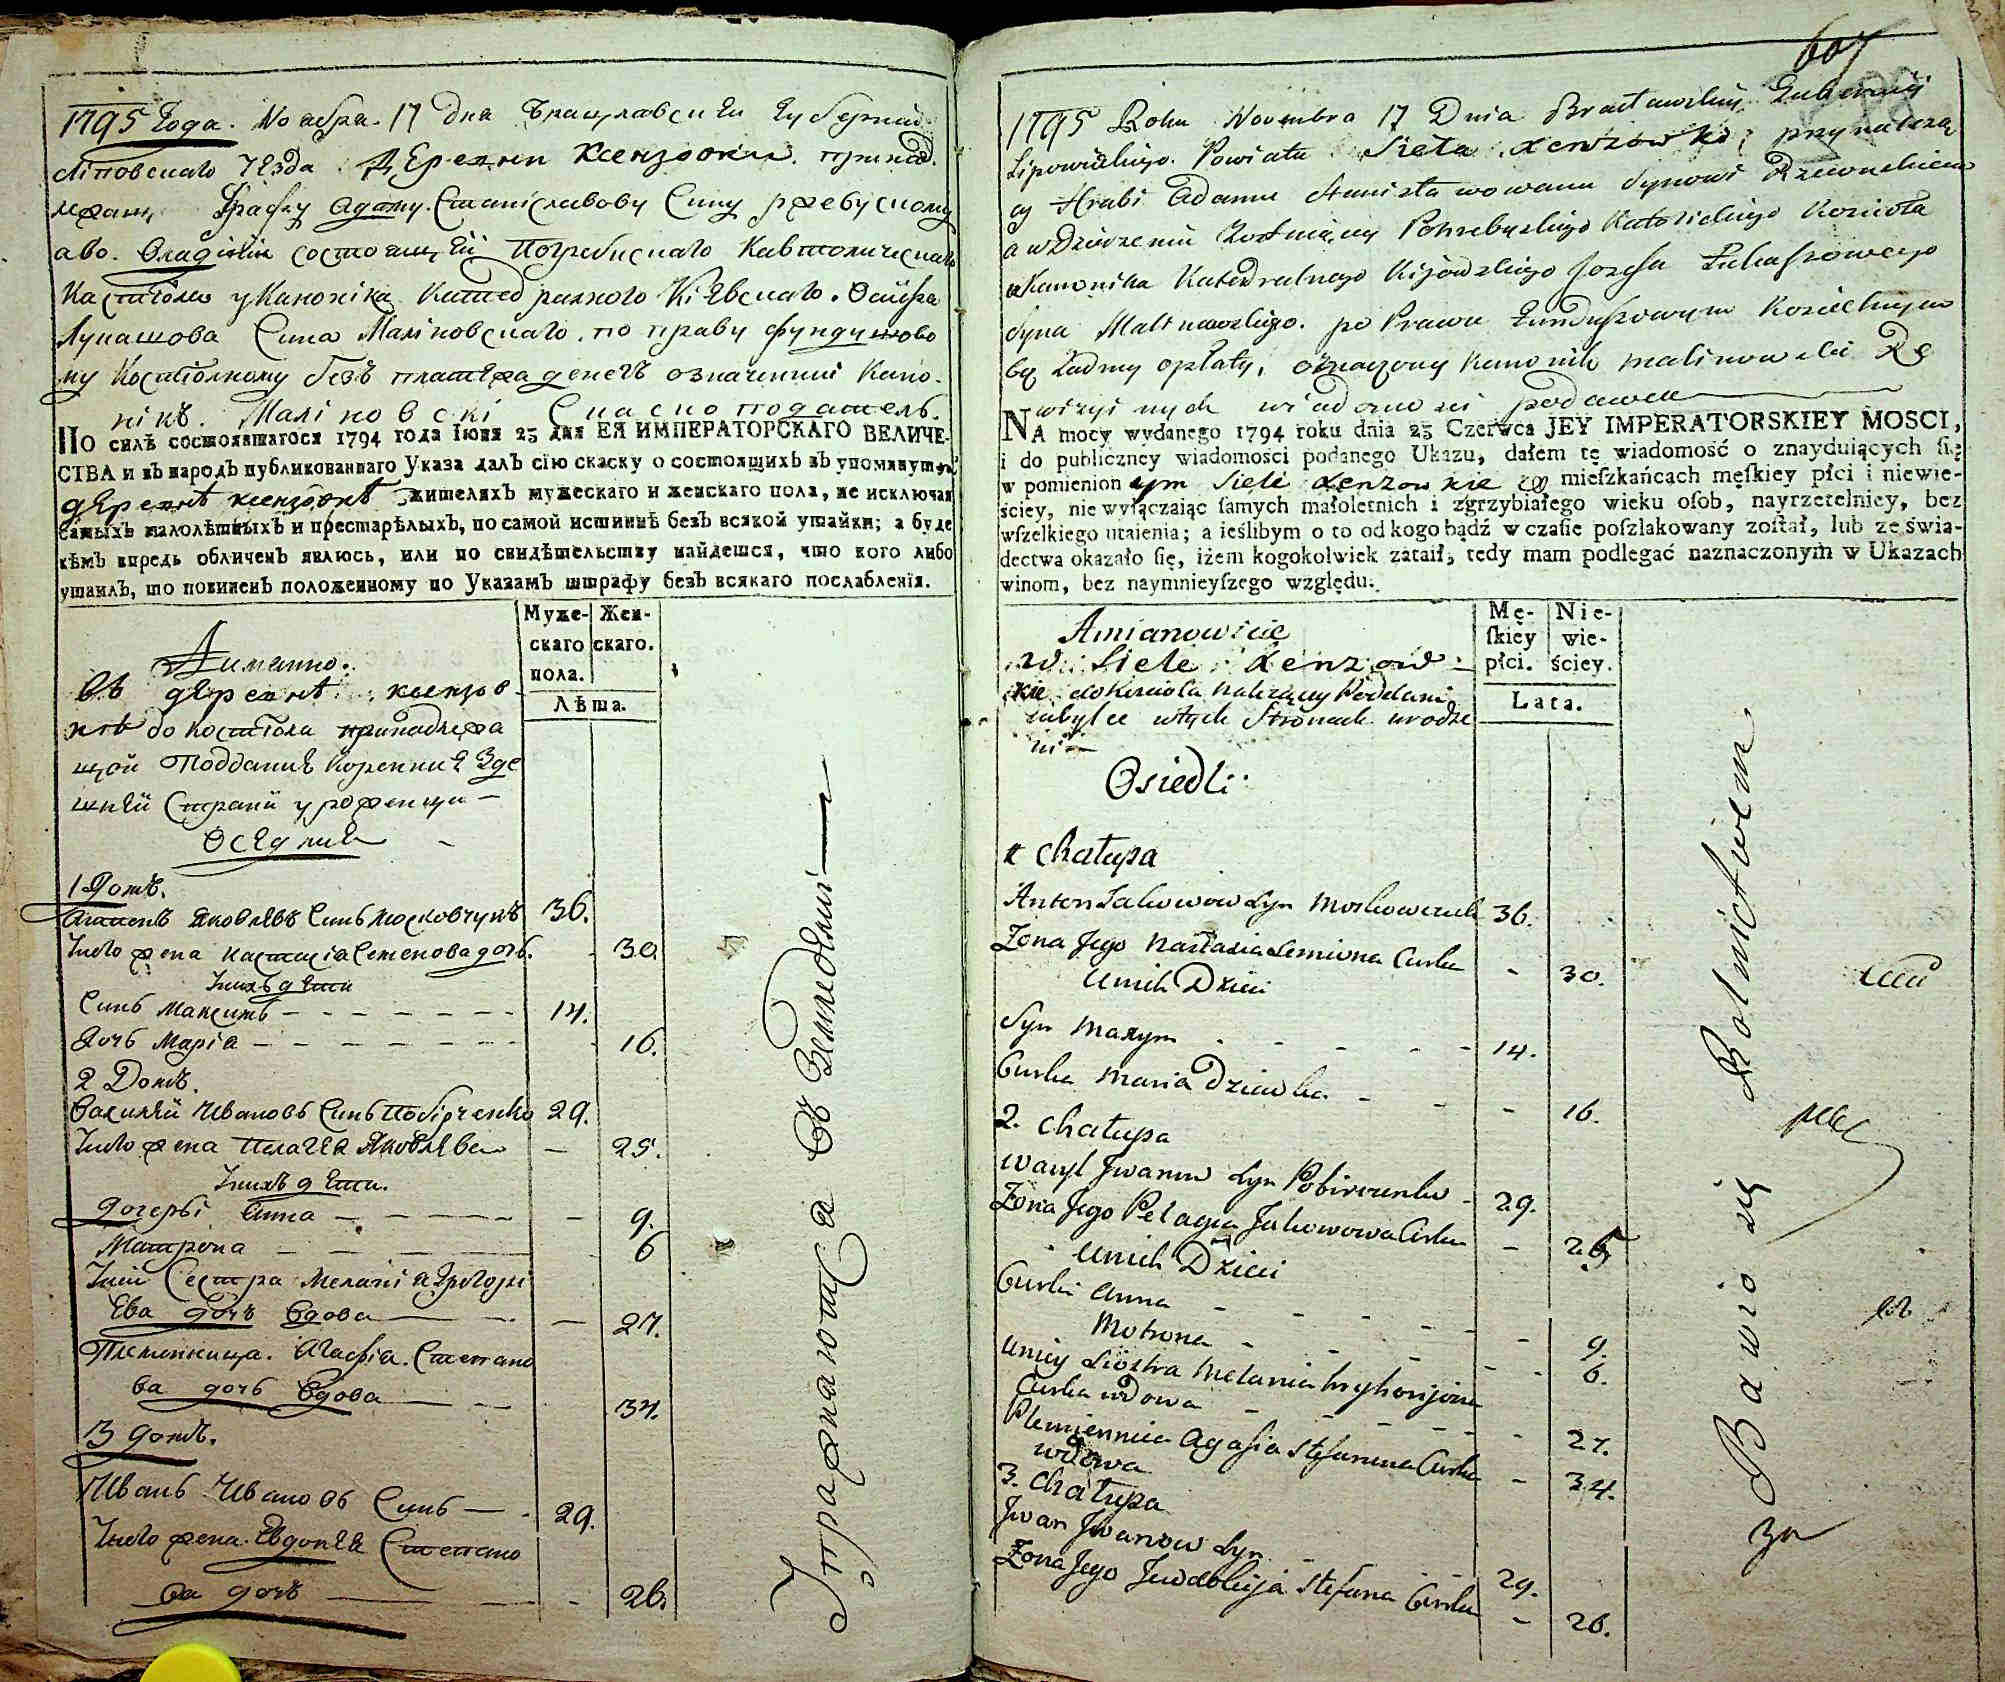 1795 Года. Ноабра. 17 дня Брацлавский Губерний
Ліповского уезда деревни Ксензовки. принад
лежащ Графу Адаму. Станіславову Сину ржевускому
а во. Владініи состоящ Ей Погребиского Кавтолического
Костіола у Каноніка Катед рального Кіевского. Осифа
Лукашова Сина Маліновского. по праву фундушово
му Костіолному безъ платежа денегъ означенний Кано.
нікъ. Маліновскі Сказко податель.
ПО силѣ состоявшагося 1794 года Іюня 23 дня ЕЯ ИМПЕРАТОРСКАГО ВЕЛИЧЕ-
СТВА и въ народъ публикованнаго Указа далъ сію скаску о состоящихъ въ упомянутой
деревнѣ ксензовкѣ жителяхъ мужескаго и женскаго пола, не исключая
самыхъ малолѣтныхъ и престарѣлыхъ, по самой истиннѣ безъ всякой утайки; а буде
кѣмъ впредь обличенъ явлюсь, или по свидѣтельству найдется, что кого либо
утаилъ, то повиненъ положенному по Указамъ штрафу безъ всякаго послабленія.
Муже-скаго пола. Жен-скаго.
Лѣта.
Аимянно.
Въ деревнѣ ксензов
кѣ до костіола принадлежа
щой Поддание Коренние Зде
шней Страни урожденци
Оседлие
1 Домъ.
Антонъ Яковлевъ Синъ Московчукъ 36.
Iного жена настасіа Семенова дочъ. 30.
Iнихъ дети
Синъ Максимъ 14.
Дочъ Маріа 16.
2 Домъ.
Василий Ивановъ Синъ Побірченко 29.
Iного жена Пелагея Яковлева 25.
Iнихъ дети.
дочерьі Анна 9.
Матрона 6
Iний Сестра Меланіа Григорі
Ева дочъ Вдова 27.
Племянница. Агафіа. Степано
ва дочъ Вдова 34.
3 домъ.
Иванъ Ивановъ Синъ 29.
Iного жена. Евдокея Степано
ва дочъ 26.
Iпражнаютца въ Земледѣлиі
607
1795 Roku Novembra 17 Dnia Bracławskiey Gubernij
Lipowieckiego Powiatu Sieła Xenzowki; przynależą
cy Hrabi Adamu Stanisławowemu Synowi Rzewuskiemu
a w Dzierzeniu Zostaiący Pohrebyskiego Katolickiego Kościoła
u Kanonika Katedralnego Kijowskiego Jozefa Łukaszowego
Syna Malinowskiego. po Prawu Funduszowym Kościelnym
bez Żadney opłaty, oznaczony Kanonik malinowski Re
wizyinych wiadomosci podawca
NA mocy wydanego 1794 roku dnia 23 Czerwca JEY IMPERATORSKIEY MOSCI,
i do publiczney wiadomości podanego Ukazu, dałem tę wiadomość o znayduiących się
w pomienionym Siele Xenzowkie mieſzkańcach męſkiey płci i niewie-
ściey, nie wyłączaiąc ſamych małoletnich i zgrzybiałego wieku oſob, nayrzetelniey, bez
wſzelkiego utaienia; a ieślibym o to od kogo bądź w czaſie poſzlakowany zoſtał, lub ze świa-
dectwa okazało ſię, iżem kogokolwiek zataił, tedy mam podlegać naznaczonym w Ukazach
winom, bez naymnieyſzego względu.
Mę-ſkiey płci. Nie-wie-ściey.
Lata.
Amianowicie
w Siele Xenzow
kie do Kościoła należący Poddani
zabylce wtych Stronach urodze
ni
Osiedli
1 Chałupa
Anton Jakowow Syn Moskowczuk 36.
Żona Jego Nastasia Semiona Curka 30.
U nich Dzieci
Syn Maxym 14.
Curka Maria Dziewka 16.
2. Chałupa
Wasyl Jwanow Syn Pobirczenko 29.
Żona Jego Pelagia Jakowowa Curka 25
U nich Dzieci
Curki Anna 9.
Motrona 6.
U niey Siostra Melania Hryhorijowa
Curka wdowa 27.
Plemiennica Agafia Stefanowa Curka
wdowa 34.
3. Chałupa
Jwan Jwanow Syn 29.
Żona Jego Jewdokija Stefana Curka 26.
Bawio się Rolnictwem